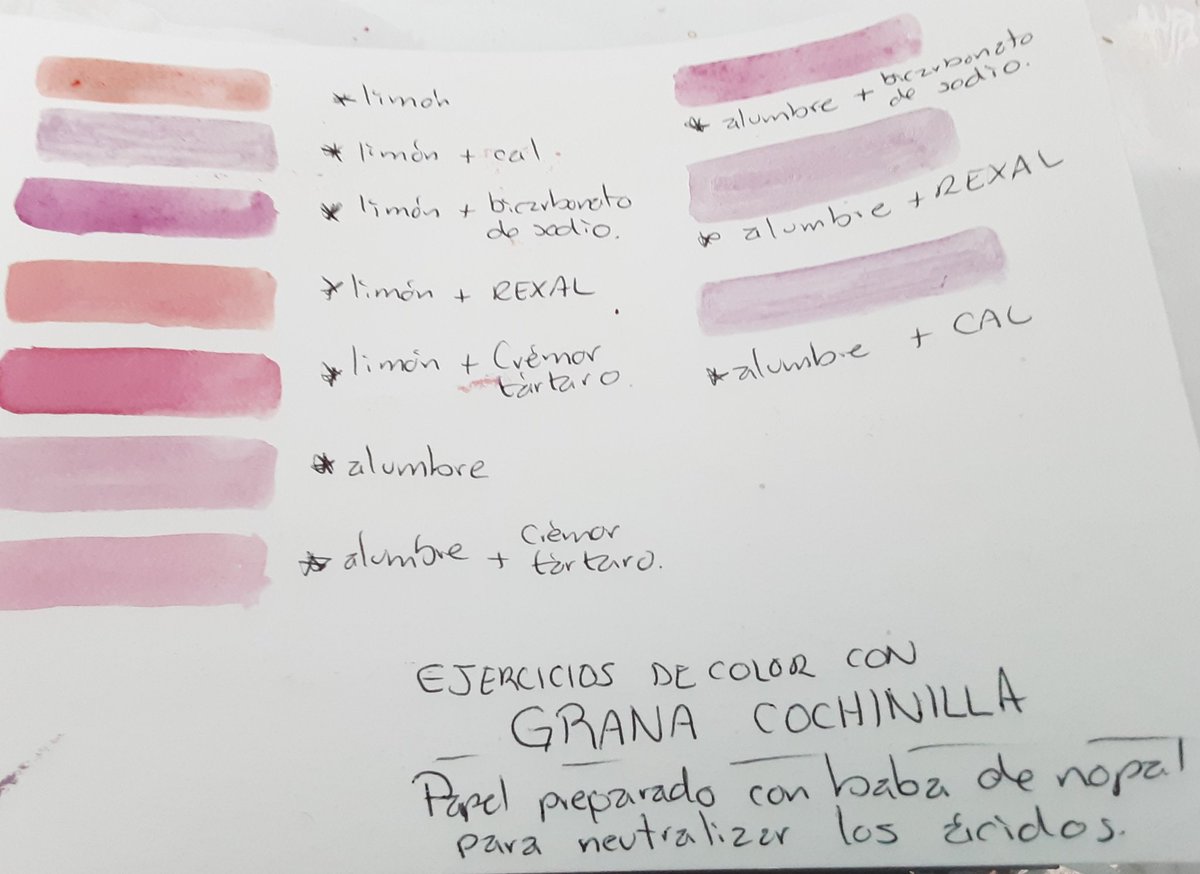 * limón
* limón + cal.
* limón + bicarbonato
de sodio.
* limón + REXAL
* limón + Crémor
tártaro.
* alumbre
* alumbre + Crémor
tártaro.
* alumbre + bicarbonato
de sodio.
* alumbre + REXAL
* alumbre + CAL
EJERCICIOS DE COLOR CON
GRANA COCHINILLA
Papel preparado con baba de nopal
para neutralizar los ácidos.